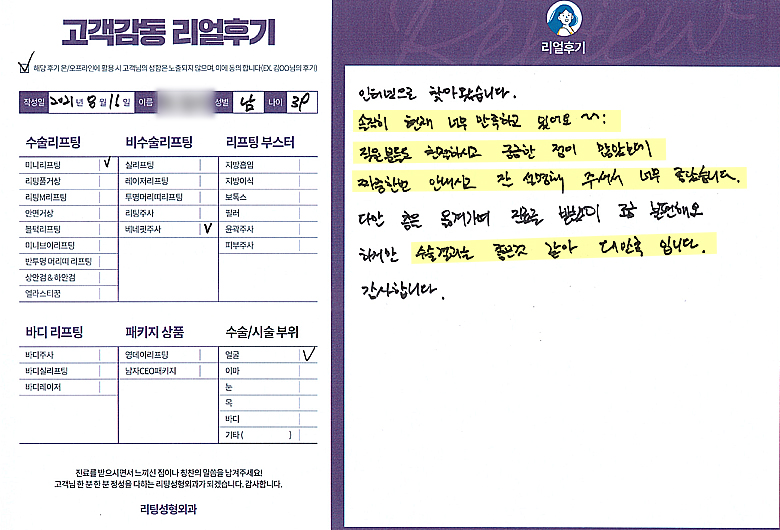 고객감동 리얼후기
해당 후기 온/오프라인에 활용 시 고객님의 성함은 노출되지 않으며, 이에 동의 합니다(EX. 김OO님의 후기)
작성일 2021년 8월 11일 이름 성별 남 나이 39
수술리프팅
미니리프팅
리팅풀거상
리팅M리프팅
안면거상
볼턱리프팅
미니브이리프팅
반투명 머리띠 리프팅
상안검 & 하안검
엘라스티꿈
비수술리프팅
실리프팅
레이저리프팅
투명머리띠리프팅
리팅주사
베네핏주사
리프팅 부스터
지방흡입
지방이식
보톡스
필러
윤곽주사
피부주사
바디 리프팅
바디주사
바디실리프팅
바디레이저
패키지 상품
영데이리프팅
남자CEO패키지
수술/시술 부위
얼굴
이마
눈
목
바디
기타( )
진료를 받으시면서 느끼신 점이나 칭찬의 말씀을 남겨주세요!
고객님 한 분 한 분 정성을 다하는 리팅성형외과가 되겠습니다. 감사합니다.
리팅성형외과
Review
리얼후기
인터넷으로 찾아왔습니다.
솔직히 현재 너무 만족하고 있어요 ~~:
직원분들도 친절하시고 궁금한 점이 많았는데
꼼꼼하게 안내하시고 잘 설명해 주셔서 너무 좋았습니다.
다만 층을 옮겨가며 진료를 받았더니 좀 불편해요
하지만 수술결과는 좋은것 같아 대만족 입니다.
감사합니다.